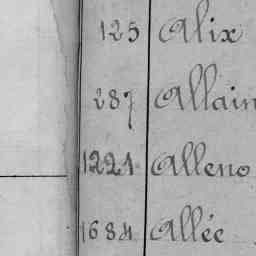 125 Alix
287 Allain
1221 Alleno
1684 Allée